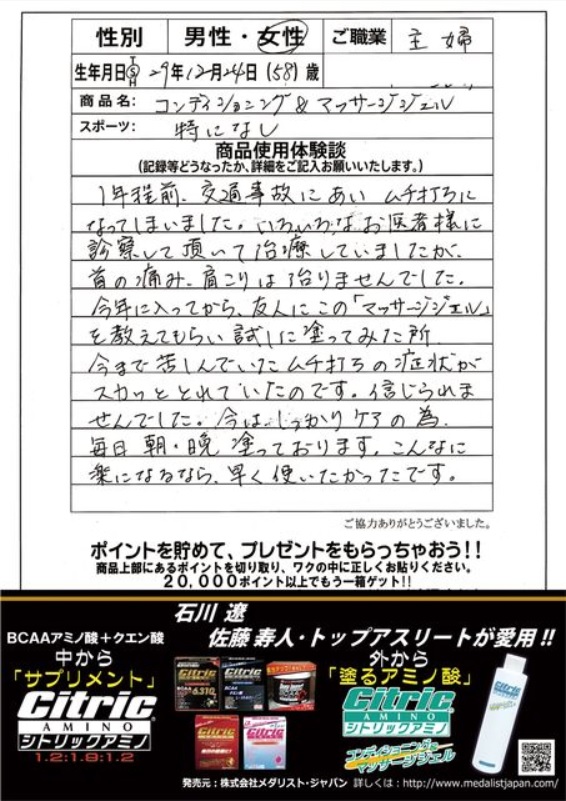 性別 男性・女性 ご職業 主婦
生年月日 S 29年12月24日(58)歳
商品名: コンディショニング&マッサージジェル
スポーツ: 特になし
商品使用体験談
(記録等どうなったか、詳細をご記入お願いいたします。)
1年程前、交通事故にあい ムチ打ちに
なってしまいました。いろいろなお医者様に
診察して頂いて治療していましたが、
首の痛み、肩こりは治りませんでした。
今年に入ってから、友人にこの「マッサージジェル」
を教えてもらい試しに塗ってみた所
今まで苦しんでいたムチ打ちの症状が
スカッととれていたのです。信じられま
せんでした。今は、しっかりケアの為、
毎日 朝・晩 塗っております。こんなに
楽になるなら、早く使いたかったです。
ご協力ありがとうございました。
ポイントを貯めて、プレゼントをもらっちゃおう!!
商品上部にあるポイントを切り取り、ワクの中に正しくお貼りください。
20,000ポイント以上でもう一箱ゲット!!
石川 遼
佐藤 寿人・トップアスリートが愛用!!
BCAAアミノ酸+クエン酸
中から
「サプリメント」
Citric
AMINO
シトリックアミノ
1.2:1.9:1.2
外から
「塗るアミノ酸」
Citric
AMINO
シトリックアミノ
コンディショニング&
マッサージジェル
Citric
発売元:株式会社メダリスト・ジャパン 詳しくは:http://www.medalistjapan.com/